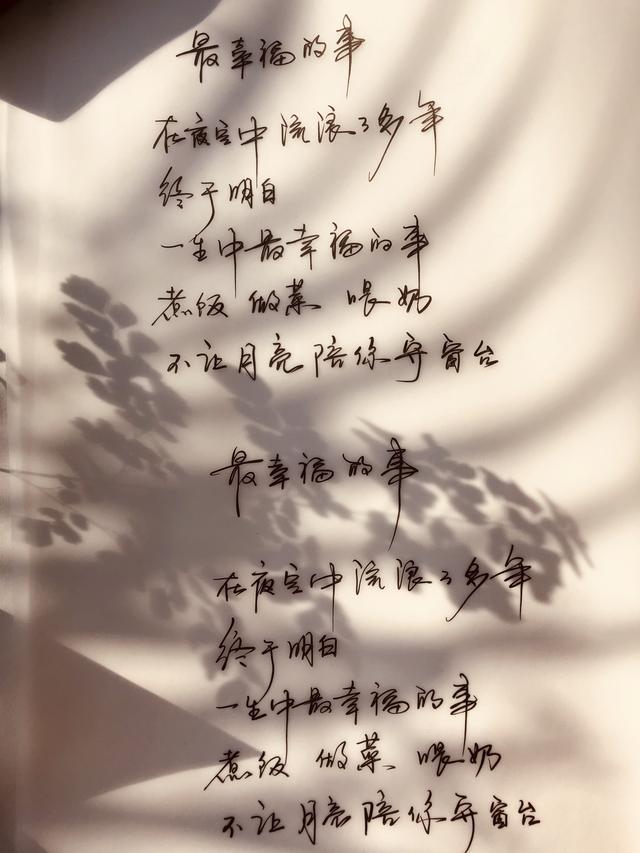 最幸福的事
在夜空中流浪了多年
终于明白
一生中最幸福的事
煮饭 做菜 喂奶
不让月亮陪你守窗台
最幸福的事
在夜空中流浪了多年
终于明白
一生中最幸福的事
煮饭 做菜 喂奶
不让月亮陪你守窗台